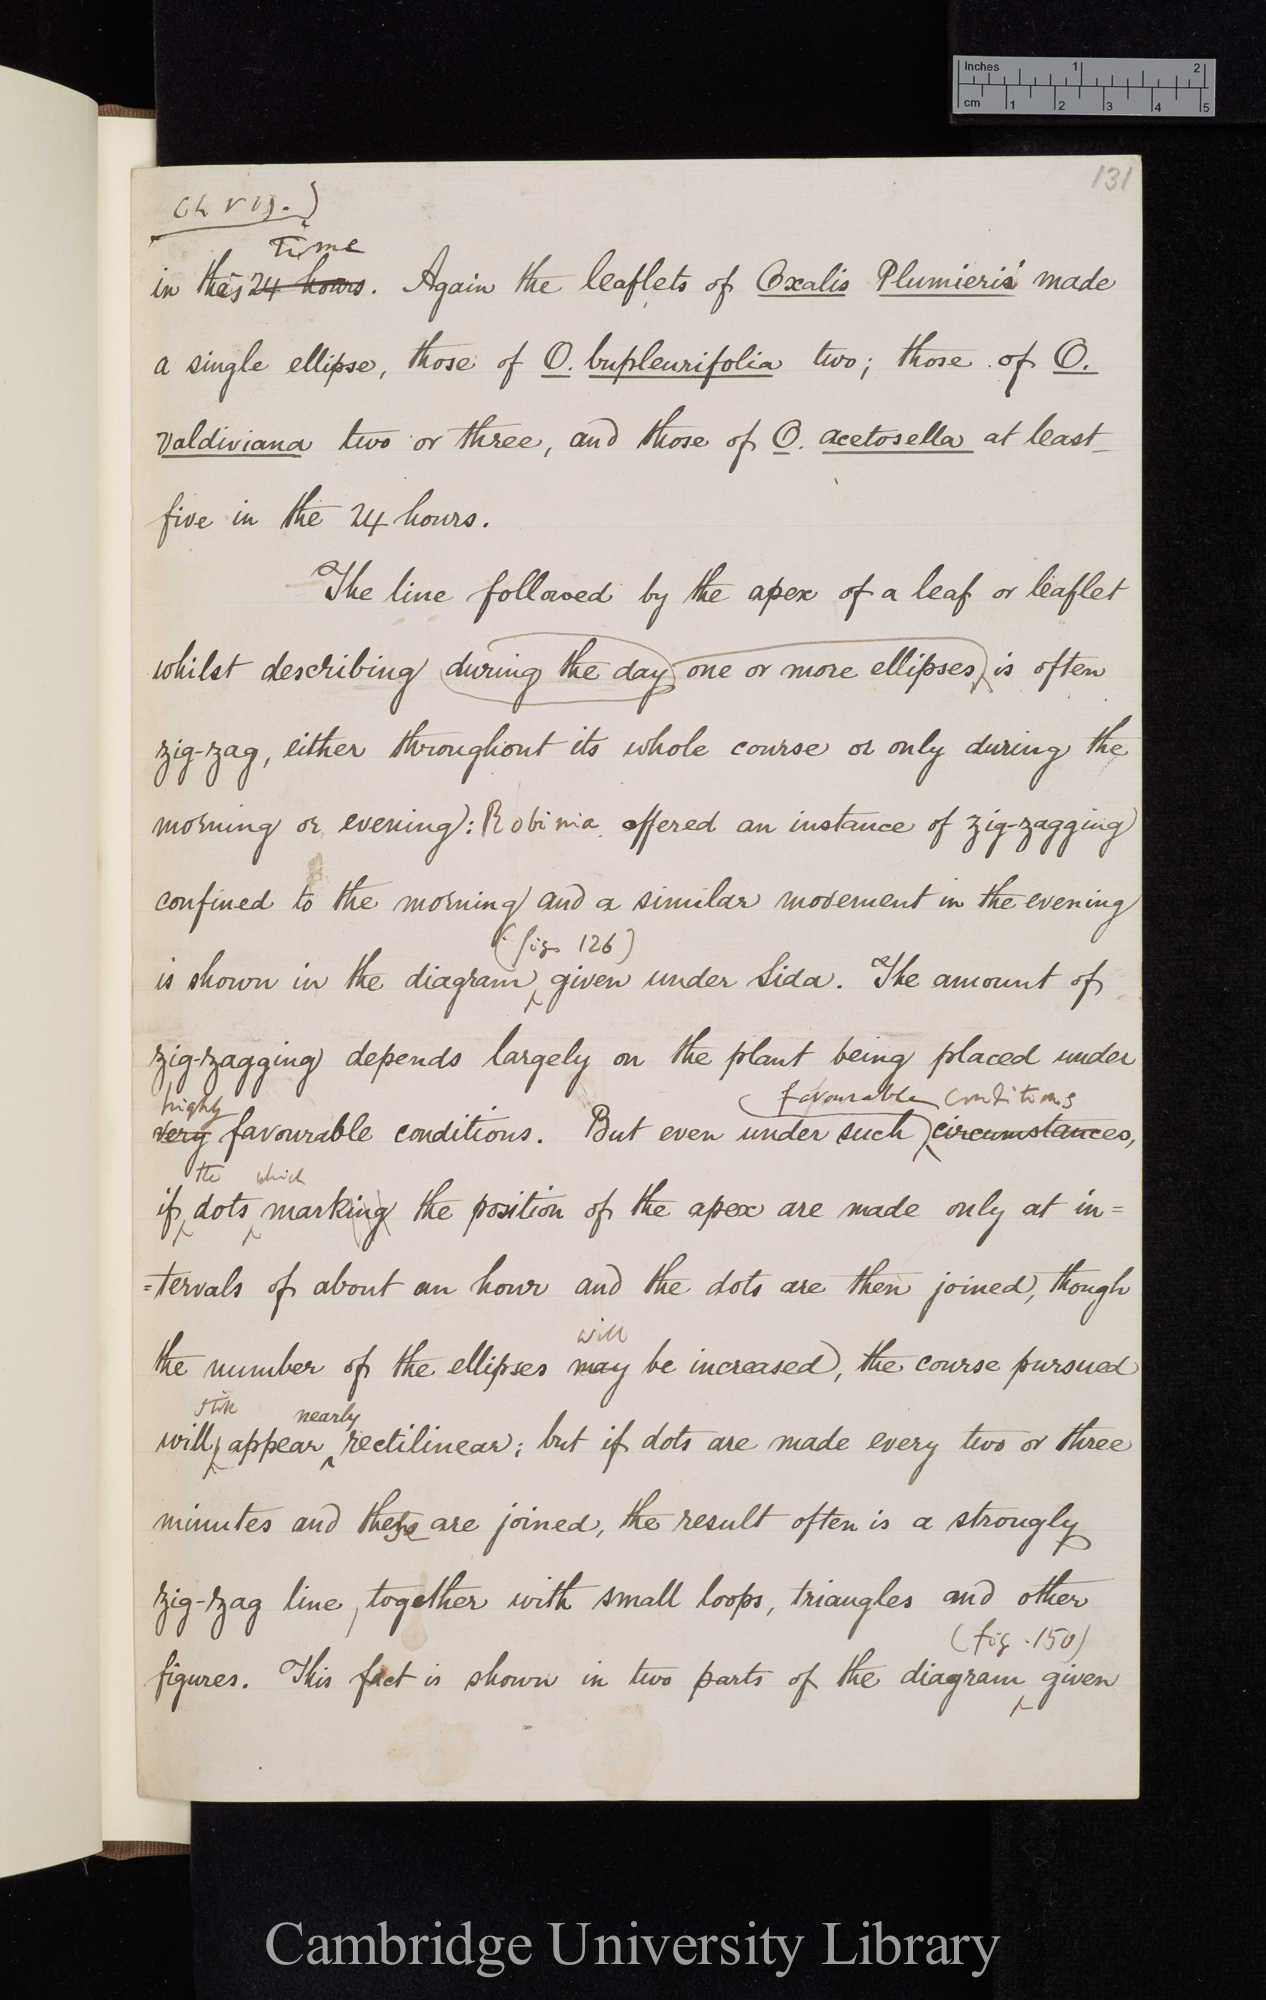 Inches 1 2
cm 1 2 3 4 5
131
Ch VII.)
time
in this 24 hours. Again the leaflets of Oxalis Plumierii made
a single ellipse, those of O. bupleurifolia two; those of O.
Valdiviana two or three, and those of O. acetosella at least
five in the 24 hours.
The line followed by the apex of a leaf or leaflet
whilst describing during the day one or more ellipses, is often
zig-zag, either throughout its whole course or only during the
morning or evening: Robinia offered an instance of zig-zagging
confined to the morning and a similar movement in the evening
(fig. 126)
is shown in the diagram given under Sida. The amount of
zig-zagging depends largely on the plant being placed under
highly favourable conditions
very favourable conditions. But even under such circumstances,
the which
if dots marking the position of the apex are made only at in=
=tervals of about an hour and the dots are then joined, though
will
the number of the ellipses may be increased, the course pursued
still nearly
will appear rectilinear; but if dots are made every two or three
minutes and these are joined, the result often is a strongly
zig-zag line, together with small loops, triangles and other
(fig. 150)
figures. This fact is shown in two parts of the diagram given
Cambridge University Library